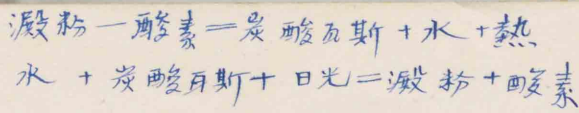 澱粉一酸素=炭酸瓦斯+水+熱
水+炭酸瓦斯+日光=澱粉+酸素